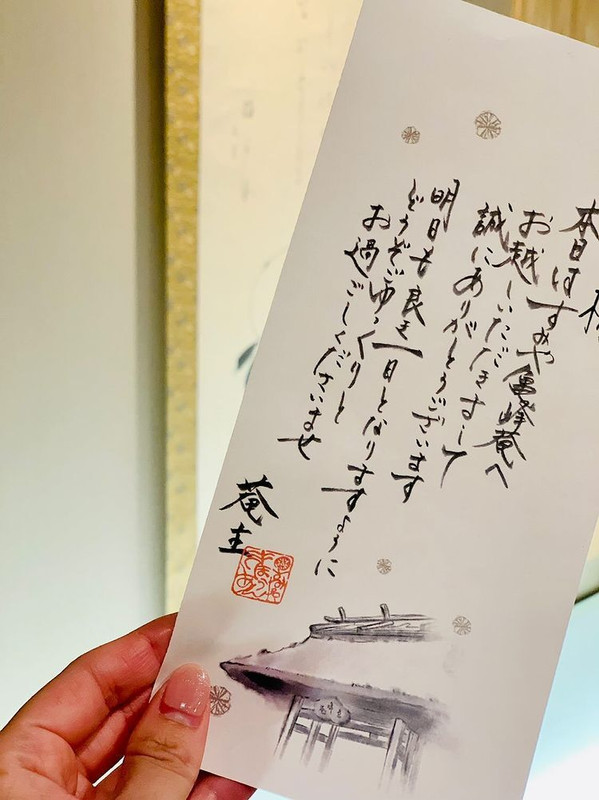 様
本日はすみや亀峰菴へ
お越しいただきまして
誠にありがとうございます
明日も良き一日となりますように
どうぞごゆっくりと
お過ごしくださいませ
菴主